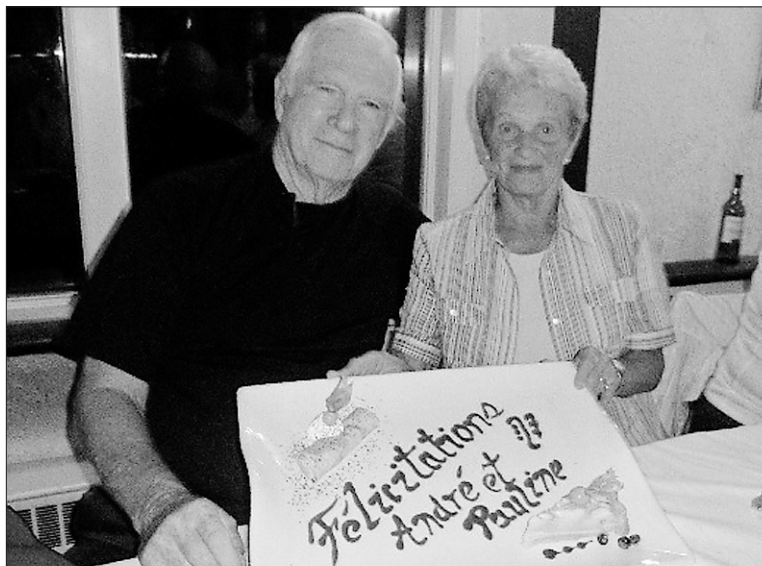 Félicitations
André et
Pauline